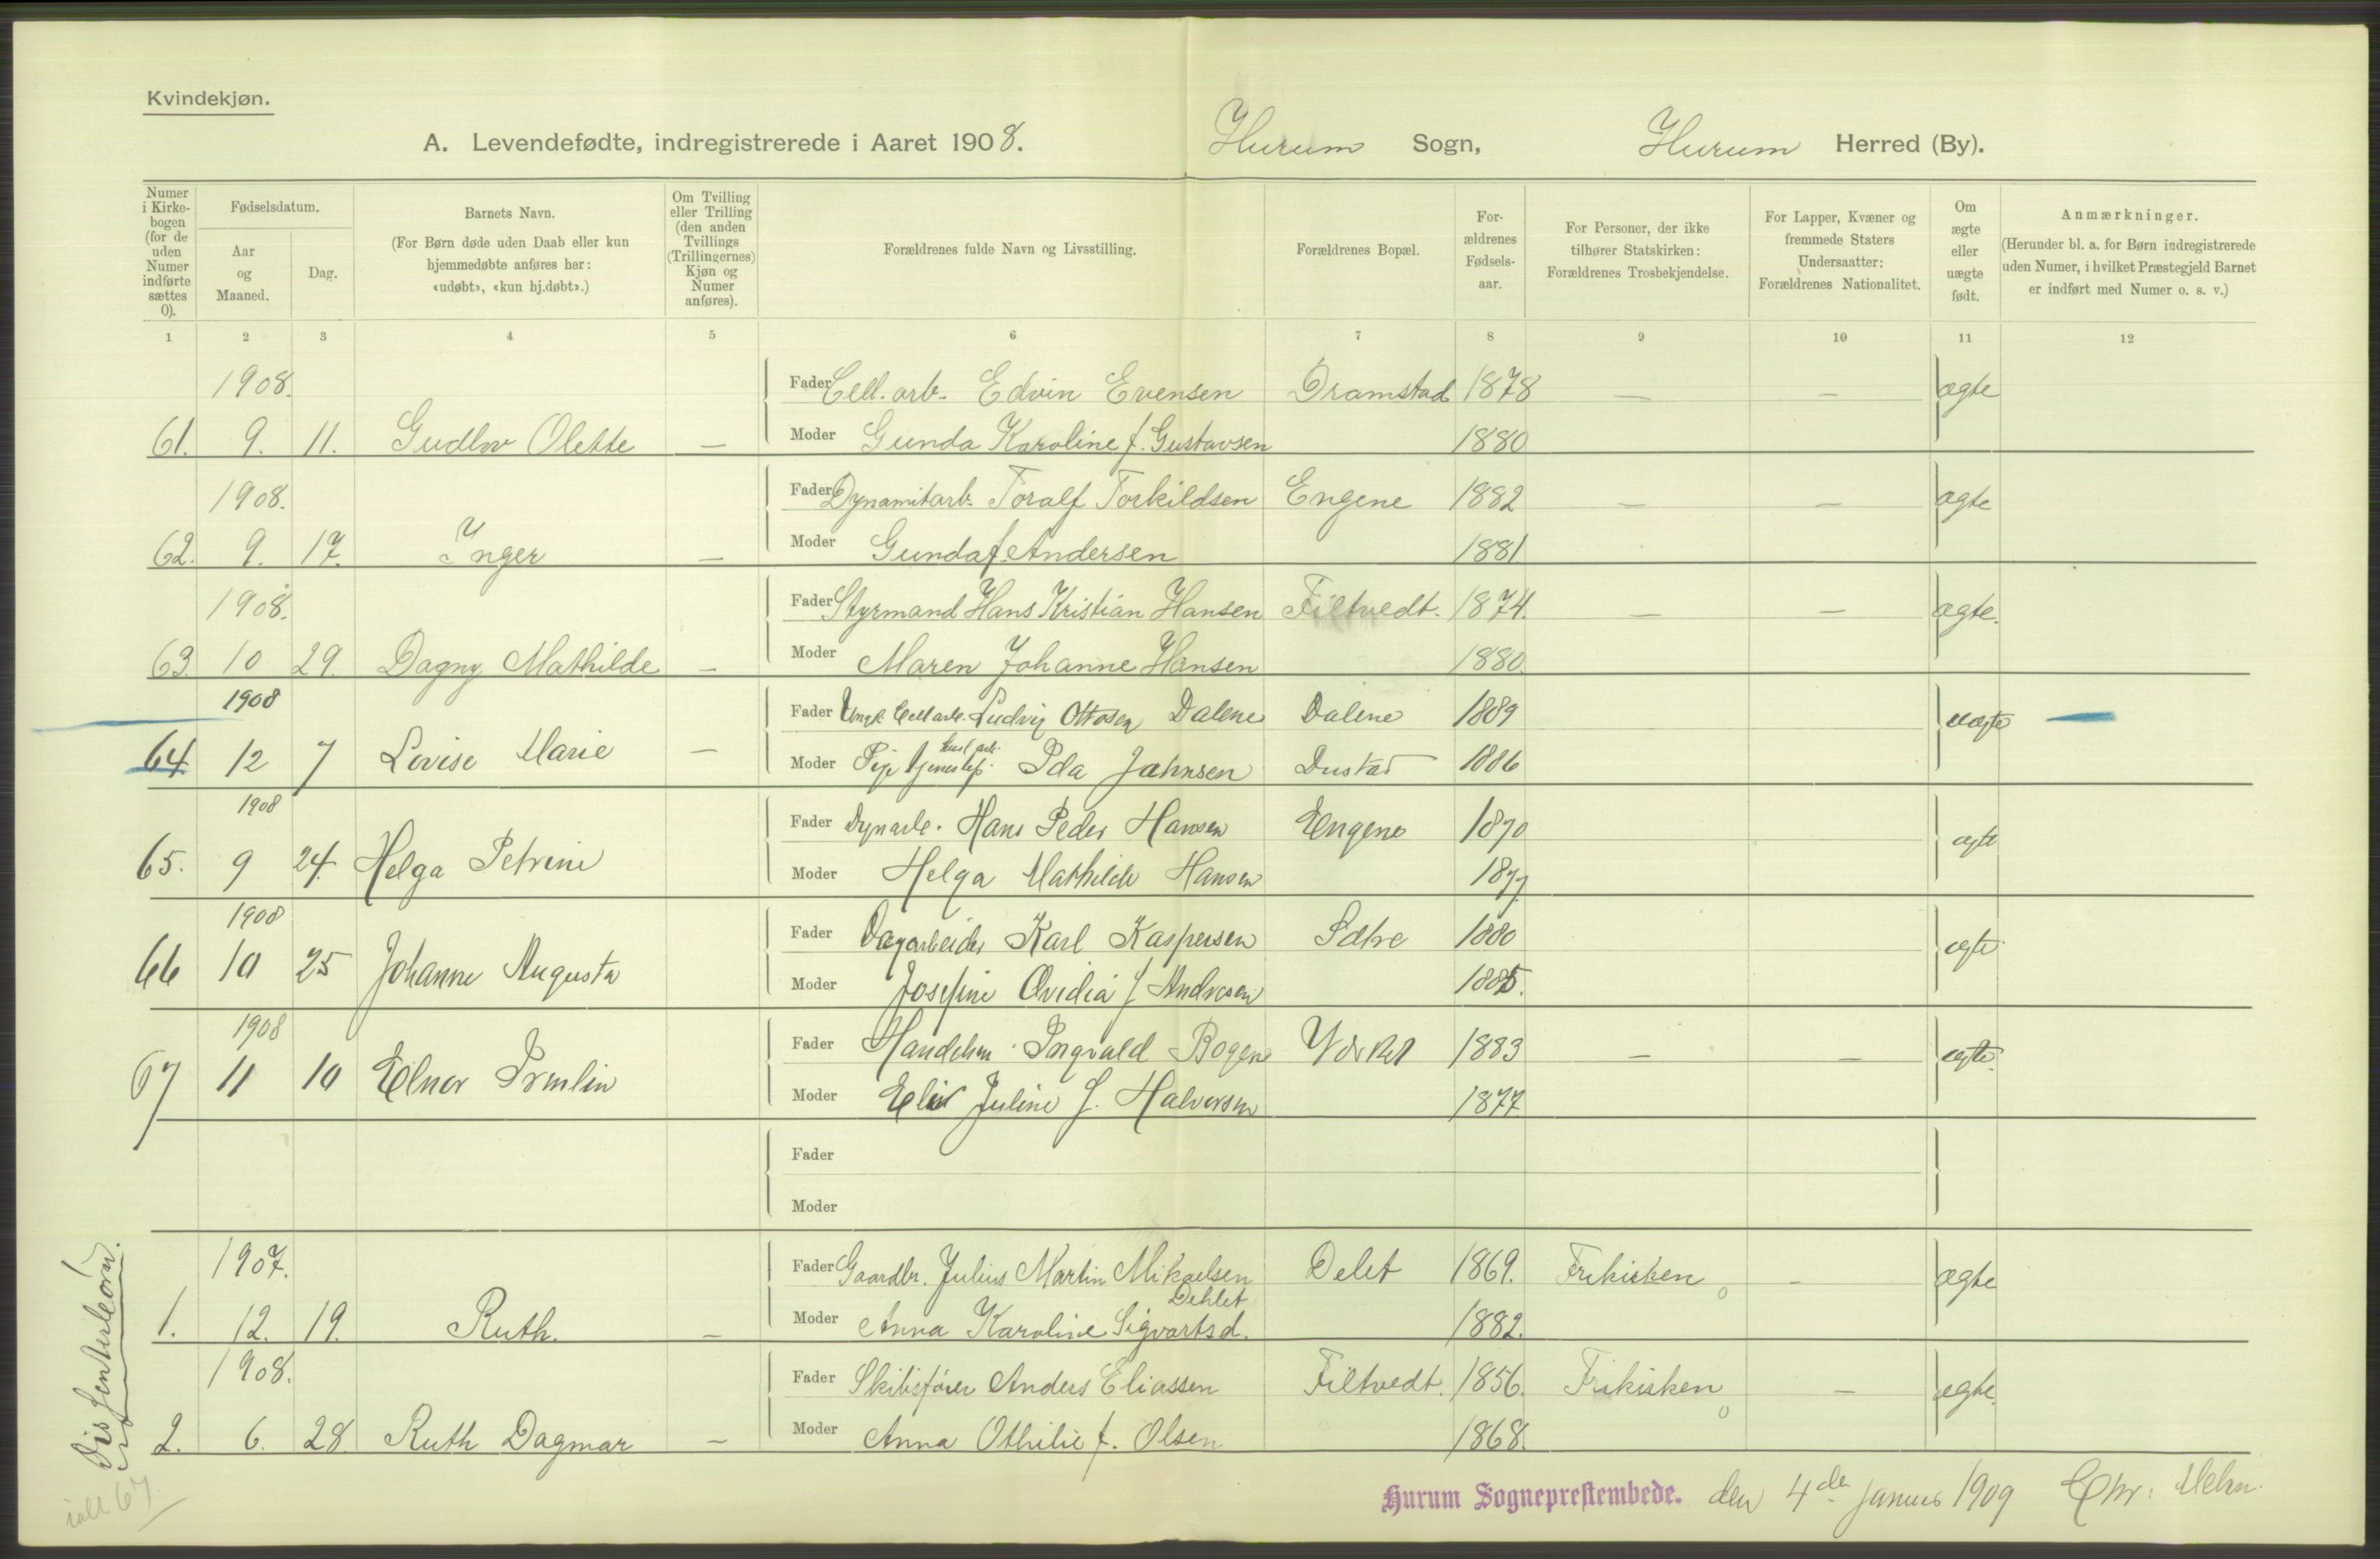 Kvindekjøn.
A. Levendefødte, indregistrerede i Aaret 1908. Hurum Sogn, Hurum Herred (By).
Numer i Kirkebogen (for de uden Numer indførte sættes 0).
Fødselsdatum.
Aar og Maaned.
Dag.
Barnets Navn.
(For Børn døde uden Daab eller kun hjemmedøbte anføres her: «udøbt», «kun hj.døbt».)
Om Tvilling eller Trilling (den anden Tvillings (Trillingernes) Kjøn og Numer anføres).
Forældrenes fulde Navn og Livsstilling.
Forældrenes Bopæl.
For-ældrenes Fødsels-aar.
For Personer, der ikke tilhører Statskirken: Forældrenes Trosbekjendelse.
For Lapper, Kvæner og fremmede Staters Undersaatter: Forældrenes Nationalitet.
Om ægte eller uægte født.
Anmærkninger.
(Herunder bl. a. for Børn indregistrerede uden Numer, i hvilket Præstegjeld Barnet er indført med Numer o. s. v.)
1 2 3 4 5 6 7 8 9 10 11 12
1908. Fader Cell. arb. Edvin Evensen Dramstad 1878 — — ægte
61. 9. 11. Gudlov Olette — Moder Gunda Karoline f. Gustavsen 1880
1908. Fader Dynamitarb. Toralf Torkildsen Engene 1882 — — ægte
62. 9. 17. Inger — Moder Gunda f. Andersen 1881.
1908. Fader Styrmand Hans Kristian Hansen Filtvedt. 1874. — — ægte.
63. 10 29. Dagny Mathilde — Moder Maren Johanne Hansen 1880.
1908 Fader Ungk. Cellarb. Ludvig Ottosen Dalene Dalene 1889 uægte
64. 12 7 Lovise Marie — Moder Pige Ida Jahnsen Dustad 1886
1908 Fader Dynarb. Hans Peder Hansen Engene 1870 ægte
65. 9 24. Helga Petrine Moder Helga Mathilde Hansen 1877
1908 Fader Dagarbeider Karl Kaspersen Sætre 1880 ægte
66 10 25 Johanne Augusta Moder Josefine Ovidia f Andresen 1885.
1908 Fader Handelsm. Ingvald Bogen Værket 1883 — — ægte.
67 11 10 Elnor Moder Juline f. Halvorsen 1877
Fader
Moder
1907. Fader Gaardbr. Julius Martin Mikaelsen Delet 1869. Frikirken — ægte
Dehlet
1. 12. 19. Ruth. — Moder Anna Karoline Sigvartsd. 1882.
1908. Fader Skibsfører Anders Eliassen Filtvedt. 1856. Frikirken — ægte.
2. 6. 28 Ruth Dagmar — Moder Anna Othilie f. Olsen 1868.
Dissenterbørn.
ialt 67.
Hurum Sogneprestembede. den 4de Januar 1909 Chr: